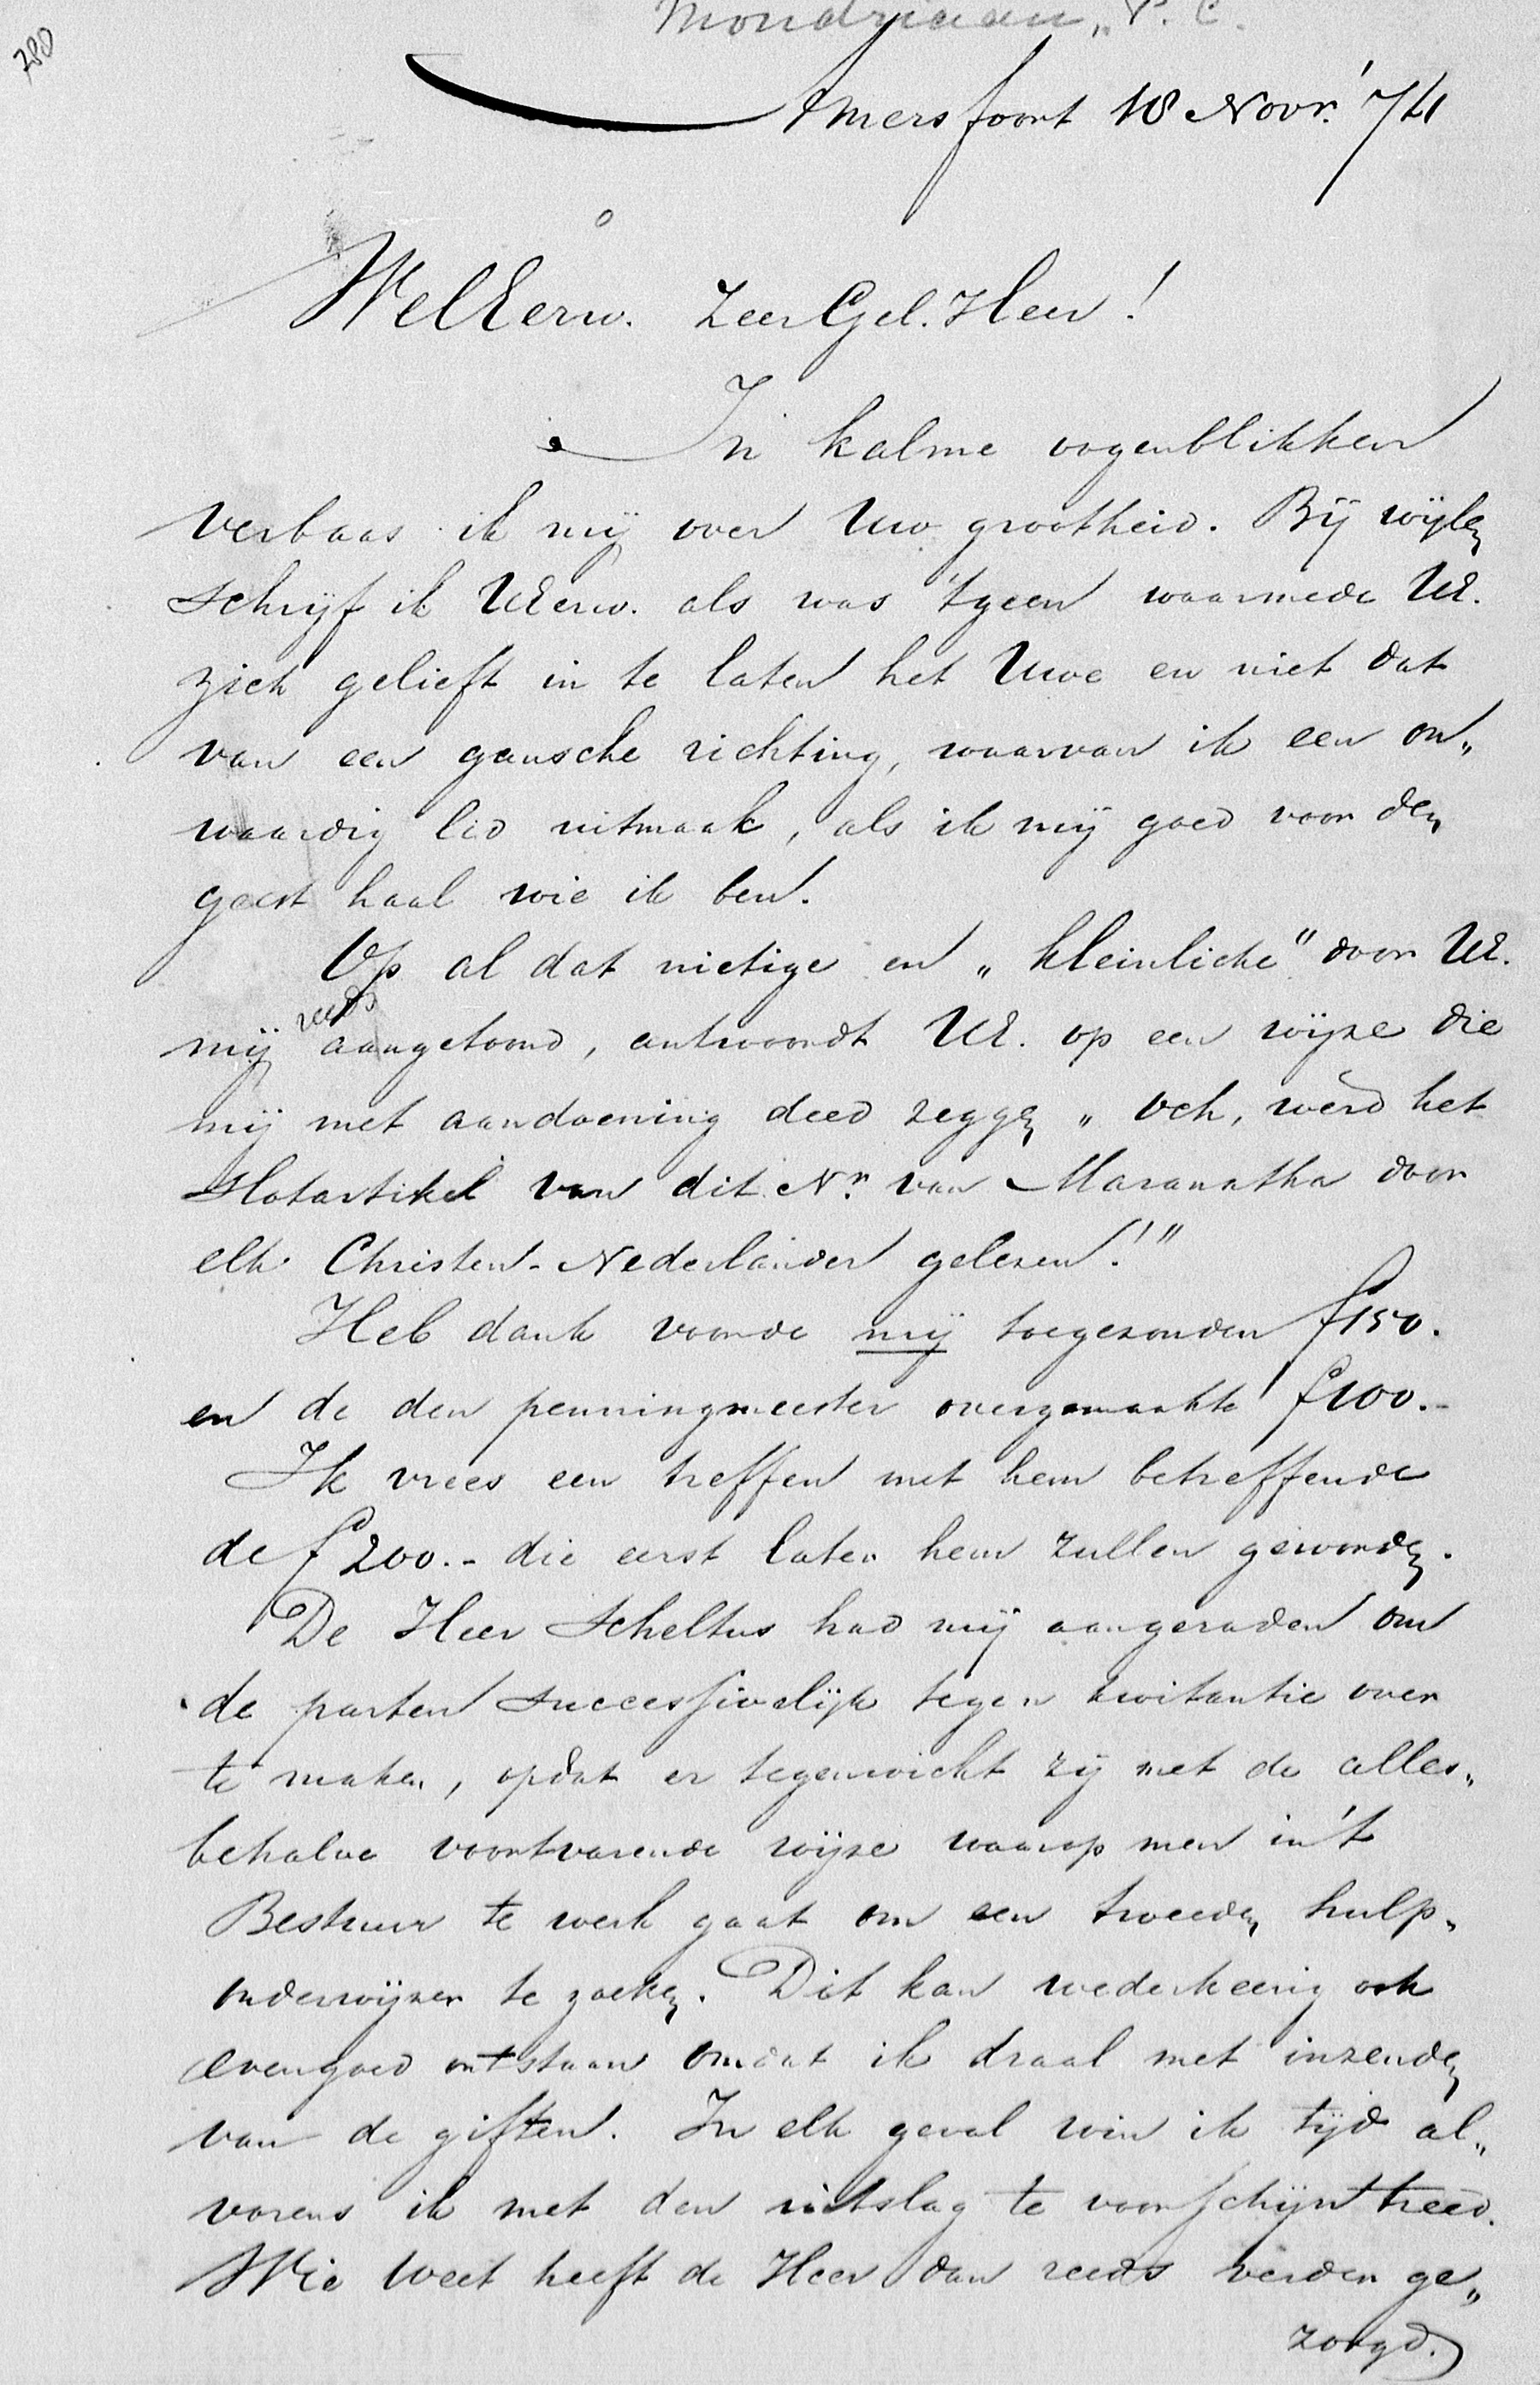 Mondriaan, P. C.
780
Amersfoort 18 Novr. '74
WelEerw. Zeer Gel. Heer!
In kalme oogenblikken
verbaas ik mij over Uw grootheid. Bij wijlen
schrijf ik UEerw. als was 'tgeen waarmede UE.
zich gelieft in te laten het Uwe en niet dat
van een gansche richting, waarvan ik een on„
waardig lid uitmaak, als ik mij goed voor den
geest haal wie ik ben.
Op al dat nietige en „kleinliche" door UE.
mij reeds aangetoond, antwoordt UE. op een wijze die
mij met aandoening deed zeggen „Och, werd het
slotartikel van dit Nr. van Maranatha door
elk Christen-Nederlander gelezen!"
Heb dank voor de mij toegezonden f150.
en de den penningmeester overgemaakte f100.-
Ik vrees een treffen met hem betreffende
de f200.- die eerst later hem zullen geworden.
De Heer Scheltus had mij aangeraden om
de parten successivelijk tegen kwitantie over
te maken, opdat er tegenwicht zij met de alles„
behalve voortvarende wijze waarop men in 't
Bestuur te werk gaat om een tweeden hulp„
onderwijzer te zoeken. Dit kan wederkeerig ook
evengoed ontstaan omdat ik draal met inzenden
van de giften. In elk geval win ik tijd al„
vorens ik met den uitslag te voorschijn treed.
Wie weet heeft de Heer dan reeds verder ge„
zorgd.